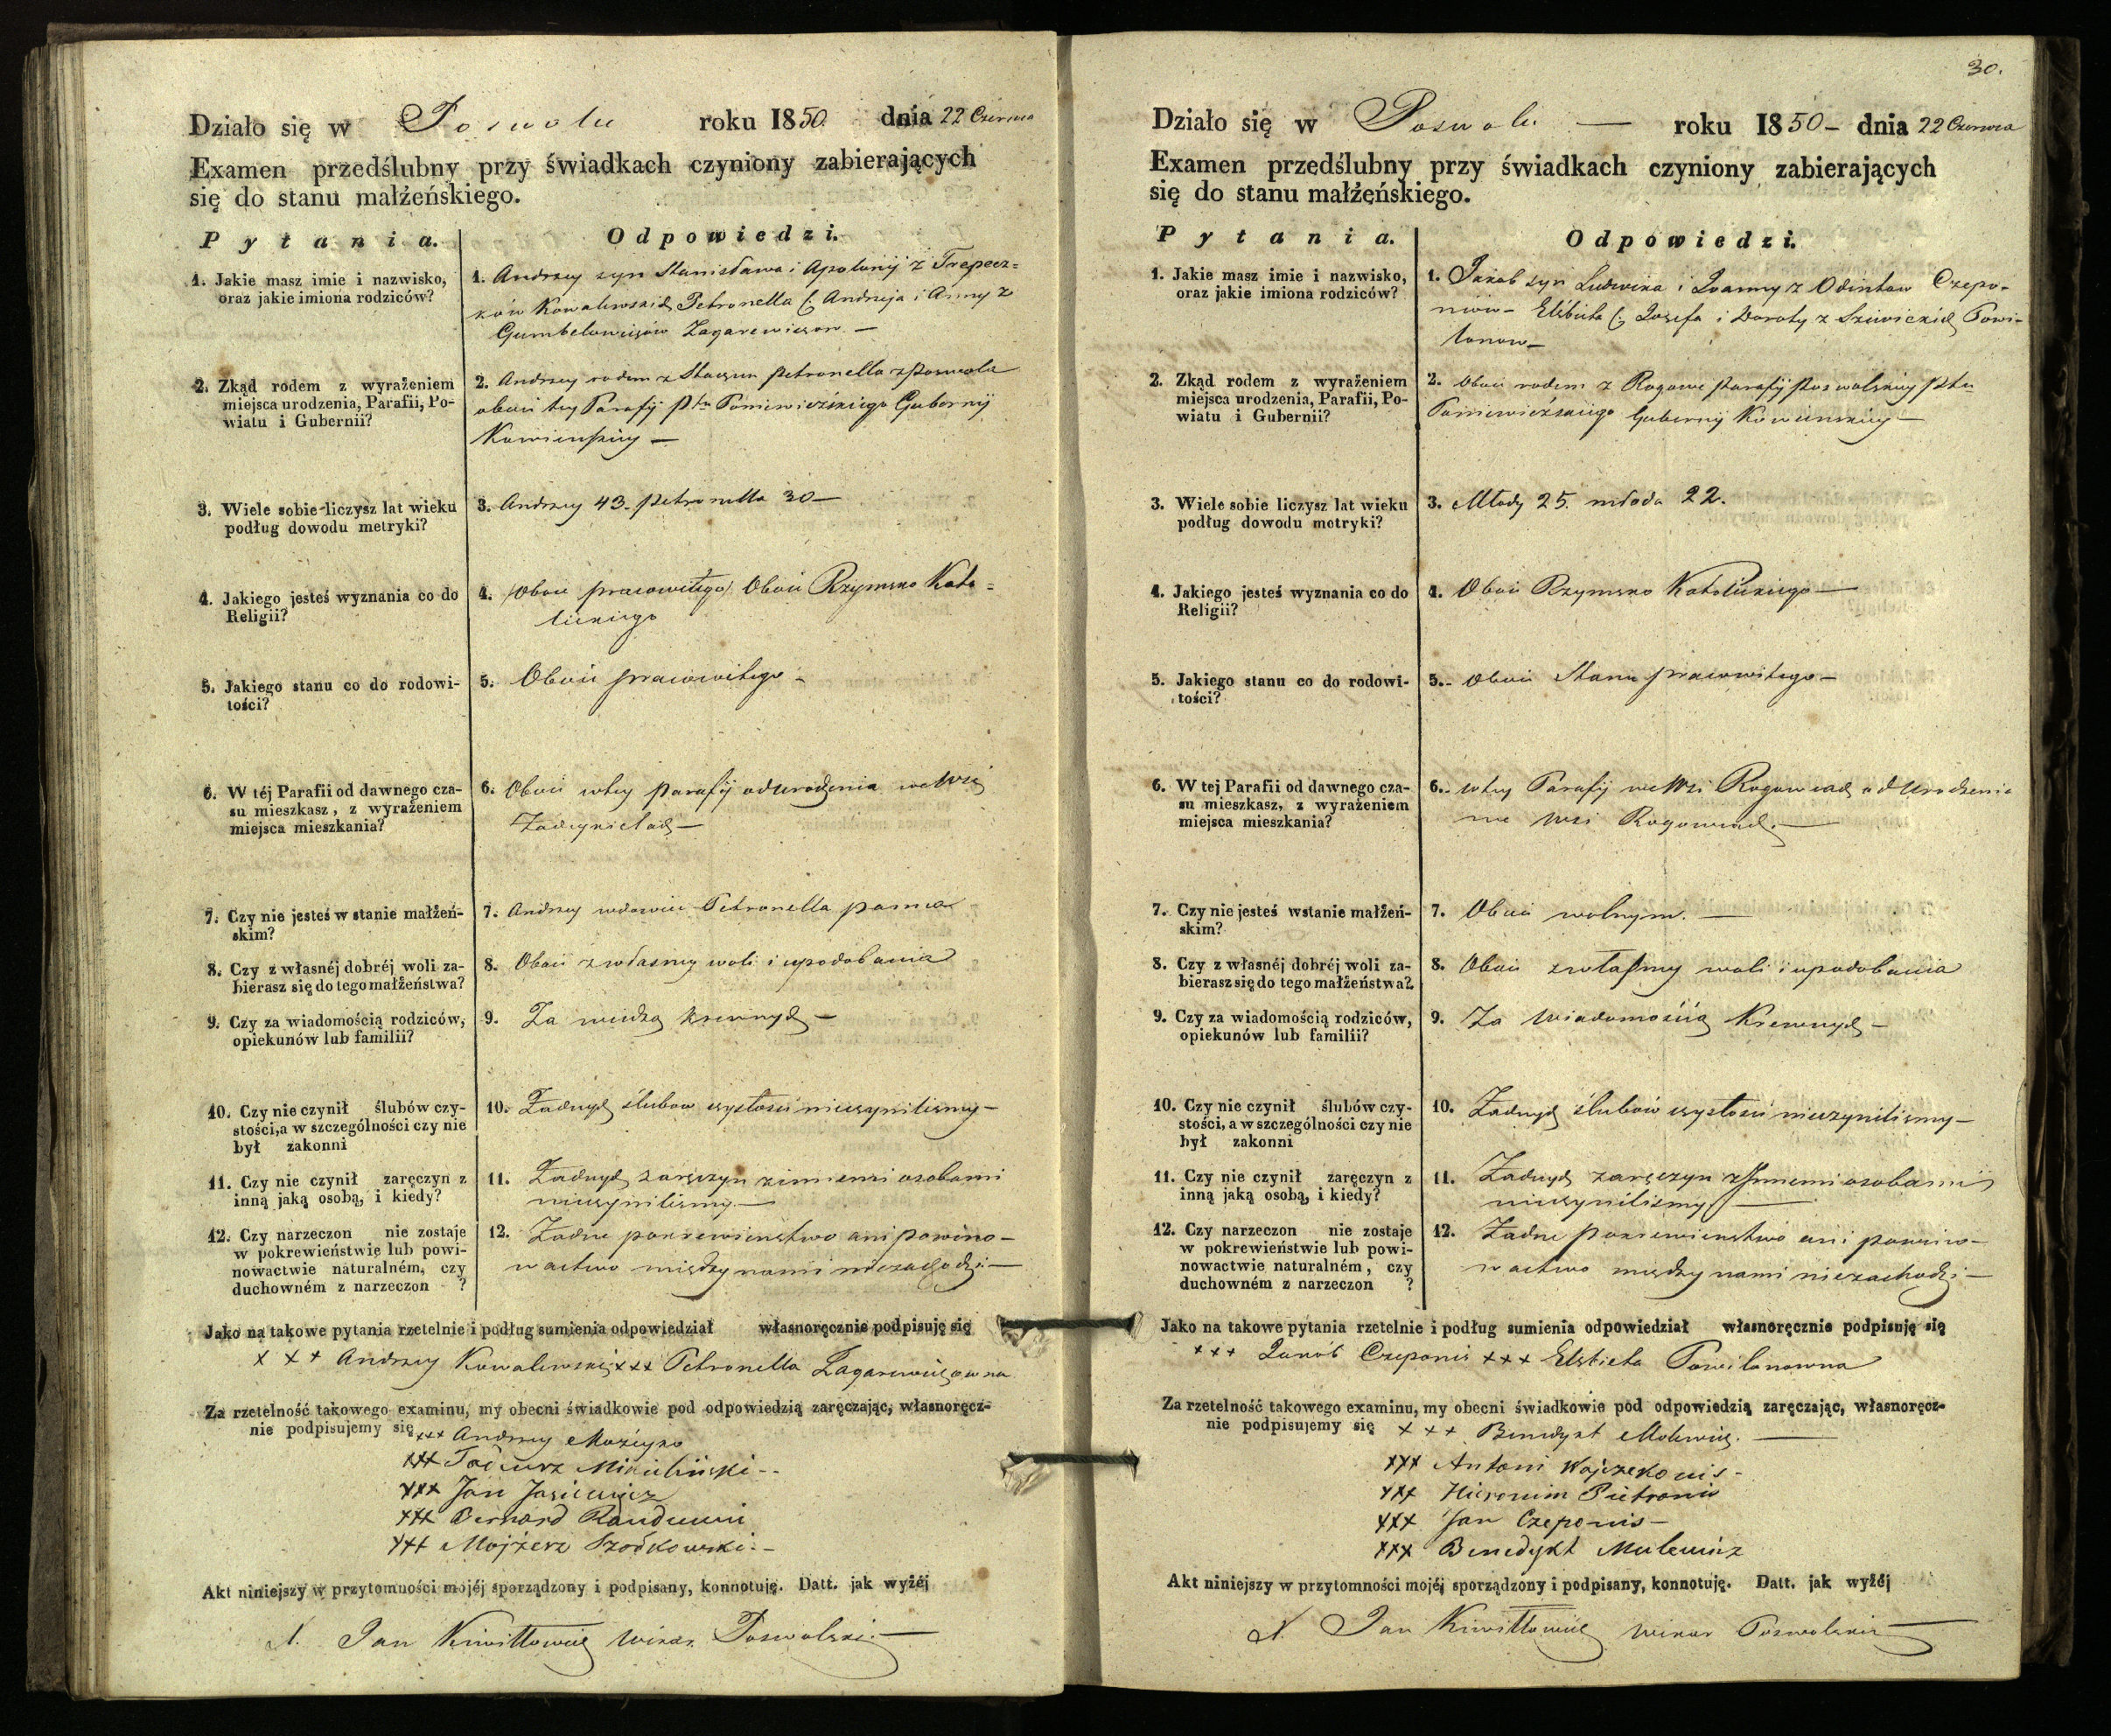 Działo się w Poswolu roku 1850. dnia 22 Czerwca
Examen przedślubny przy świadkach czyniony zabierających
się do stanu małżeńskiego.
Pytania.
Odpowiedzi.
1. Jakie masz imie i nazwisko,
oraz jakie imiona rodziców?
1. Andrzey syn Stanisława i Apolonij z Trepecz=
ków Kowalewskich Petronella C: Andrzeja i Anny z
Gumbelewiczów Zagarewiczow. —
2. Zkąd rodem z wyrażeniem
miejsca urodzenia, Parafii, Po-
wiatu i Gubernii?
2. Andrzey rodem z Petronella z Poswola
oboii tey Parafij Ptu Poniewieżskiego Gubernij
Kowieńskiey —
3. Wiele sobie liczysz lat wieku
podług dowodu metryki?
3. Andrzey 43. Petronella 30 —
4. Jakiego jesteś wyznania co do
Religii?
4. (Oboii pracowitego) Oboii Rzymsko Kato=
lickiego
5. Jakiego stanu co do rodowi-
tości?
5. Oboii pracowitego —
6. W téj Parafii od dawnego cza-
su mieszkasz, z wyrażeniem
miejsca mieszkania?
6. Oboii wtey parafij od urodzenia we Wsi
7. Czy nie jesteś w stanie małżeń-
skim?
7. Andrzey wdowiec Petronella panna
8. Czy z własnéj dobréj woli za-
bierasz się do tego małżeństwa?
8. Oboii z własney woli i upodobania
9. Czy za wiadomością rodziców,
opiekunów lub familii?
9. Za wiedzą krewnych —
10. Czy nie czynił ślubów czy-
stości, a w szczególności czy nie
był zakonni
10. Żadnych ślubow czystości nieczyniliśmy —
11. Czy nie czynił zaręczyn z
inną jaką osobą, i kiedy?
11. Żadnych zaręczyn z innemi osobami
nieczyniliśmy. —
12. Czy narzeczon nie zostaje
w pokrewieństwie lub powi-
nowactwie naturalném, czy
duchowném z narzeczon ?
12. Żadne pokrewienstwo ani powino-
wactwo między nami niezachodzi —
Jako na takowe pytania rzetelnie i podług sumienia odpowiedział własnoręcznie podpisuję się
x x x Andrzey Kowalewski xxx Petronella Zagarewiczowna
Za rzetelność takowego examinu, my obecni świadkowie pod odpowiedzią zaręczając, własnoręcz-
nie podpisujemy się xxx Andrzey Możeyko
xxx Tadeusz Mikieliński --
xxx Jan Jasiewicz
xxx Bernard
xxx Mojżesz Szo­dkowski. -
Akt niniejszy w przytomności mojéj sporządzony i podpisany, konnotuję. Datt. jak wyżéj
X. Jan Kiwiłłowicz Wikar. Poswolski. —
30.
Działo się w Poswolu — roku 1850 - dnia 22 Czerwca
Examen przedślubny przy świadkach czyniony zabierających
się do stanu małżeńskiego.
Pytania.
Odpowiedzi.
1. Jakie masz imie i nazwisko,
oraz jakie imiona rodziców?
1. Jakob syn Ludwika i Joanny z Odintow Czepo-
niow - Elżbieta C: Jozefa i Doroty z Sziwickich Powi-
lonow —
2. Zkąd rodem z wyrażeniem
miejsca urodzenia, Parafii, Po-
wiatu i Gubernii?
2. Oboii rodem z Rogowc Parafij Poswolskiey Ptu
Poniewieżskiego Gubernij Kowienskiey —
3. Wiele sobie liczysz lat wieku
podług dowodu metryki?
3. Młody 25. młoda 22.
4. Jakiego jesteś wyznania co do
Religii?
4. Oboii Rzymsko Katolickiego —
5. Jakiego stanu co do rodowi-
tości?
5. - Oboii Stanu pracowitego —
6. W tej Parafii od dawnego cza-
su mieszkasz, z wyrażeniem
miejsca mieszkania?
6. - wtey Parafij we Wsi Rogowcach od Urodzenia
we Wsi Rogowcach. —
7. Czy nie jesteś wstanie małżeń-
skim?
7. Oboii wolnym. —
8. Czy z własnéj dobréj woli za-
bierasz się do tego małżeństwa?
8. Oboii z własney woli i upodobania
9. Czy za wiadomością rodziców,
opiekunów lub familii?
9. Za Wiadomością Krewnych —
10. Czy nie czynił ślubów czy-
stości, a w szczególności czy nie
był zakonni
10. Żadnych ślubow czystości nieczyniliśmy —
11. Czy nie czynił zaręczyn z
inną jaką osobą, i kiedy?
11. Żadnych zaręczyn z Innemi osobami
nieczyniliśmy —
12. Czy narzeczon nie zostaje
w pokrewieństwie lub powi-
nowactwie naturalném, czy
duchowném z narzeczon ?
12. Żadne pokrewienstwo ani powino-
wactwo między nami niezachodzi —
Jako na takowe pytania rzetelnie i podług sumienia odpowiedział własnoręcznie podpisuję się
xxx Jakób Czeponis xxx Elżbieta Powilonowna
Za rzetelność takowego examinu, my obecni świadkowie pod odpowiedzią zaręczając, własnoręcz-
nie podpisujemy się x x x Benedykt Molewicz. —
xxx Antoni Wojczekonis -
xxx Hieronim Pietronis
xxx Jan Czeponis -
xxx Benedykt Mulewicz
Akt niniejszy w przytomności mojéj sporządzony i podpisany, konnotuję. Datt. jak wyżéj
X. Jan Kiwiłłowicz Wikar Poswolski —